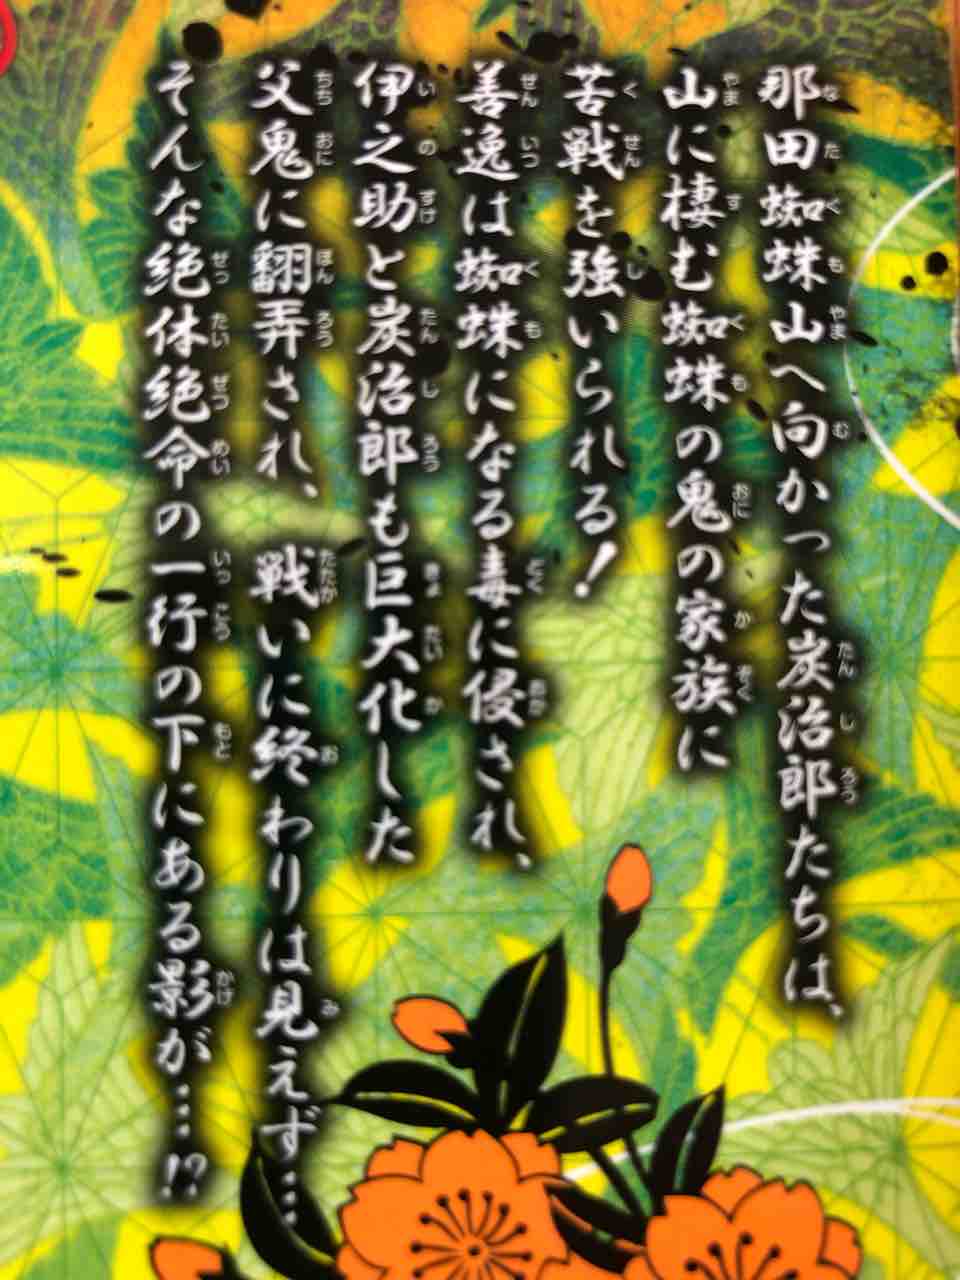 那田蜘蛛山へ向かった炭治郎たちは、
山に棲む蜘蛛の鬼の家族に
苦戦を強いられる!
善逸は蜘蛛になる毒に侵され、
伊之助と炭治郎も巨大化した
父鬼に翻弄され、戦いに終わりは見えず…
そんな絶体絶命の一行の下にある影が…!?